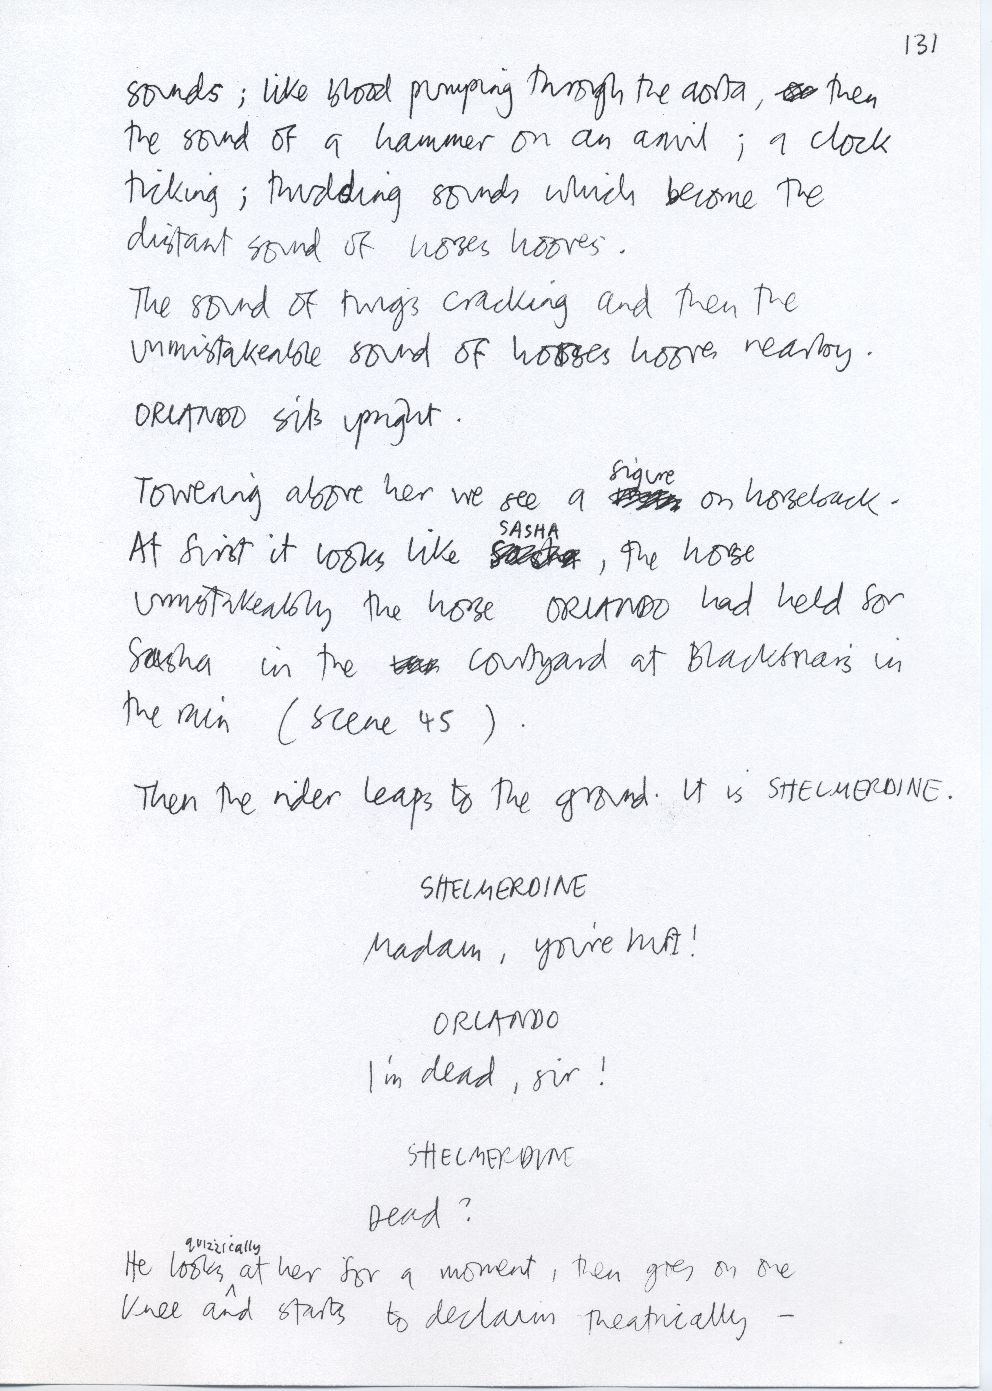 131
sounds ; like blood pumping through the aorta, then
the sound of a hammer on an anvil ; a clock
ticking ; thudding sounds which become the
distant sound of horses hooves.
The sound of twigs cracking and then the
unmistakeable sound of horses hooves nearby.
ORLANDO sits upright.
figure
Towering above her we see a on horseback.
SASHA
At first it looks like , the horse
unmistakeably the horse ORLANDO had held for
Sasha in the courtyard at Blackfriars in
the rain (scene 45).
Then the rider leaps to the ground. It is SHELMERDINE.
SHELMERDINE
Madam, you're hurt!
ORLANDO
I'm dead, sir!
SHELMERDINE
Dead?
quizzically
He looks at her for a moment, then goes on one
knee and starts to declaim theatrically -